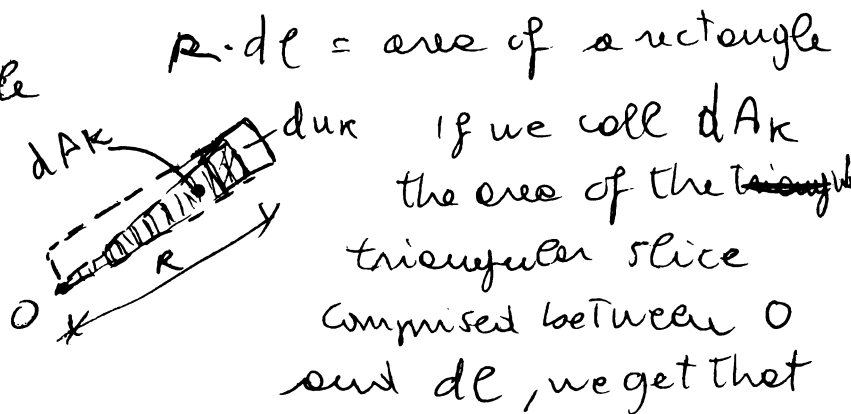 le
R·dl = area of a rectangle
dAK
duk
If we call dAK
the area of the
triangular slice
R
O
comprised between O
and dl, we get that